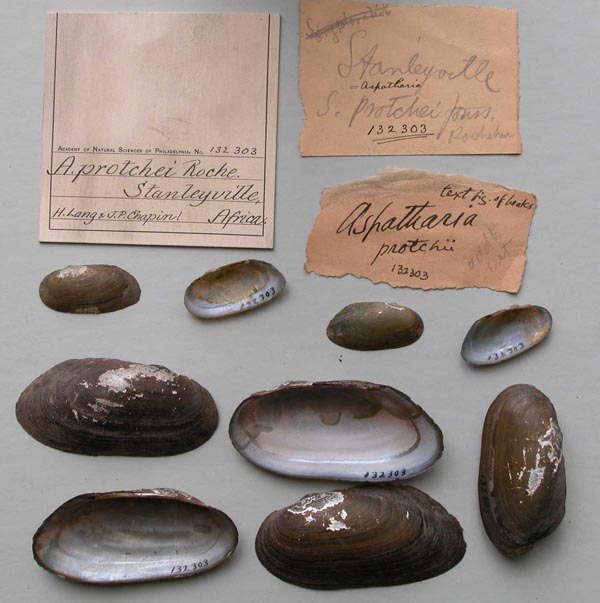 ACADEMY OF NATURAL SCIENCES OF PHILADELPHIA, NO. 132303
A. protchei Roche.
Stanleyville,
H. Lang & J.P. Chapin! Africa.
Stanleyville
= Aspatharia
S. protchei
132303
text fig. of beaks
Aspatharia
protchii
132303
132303
132303
132303
132303